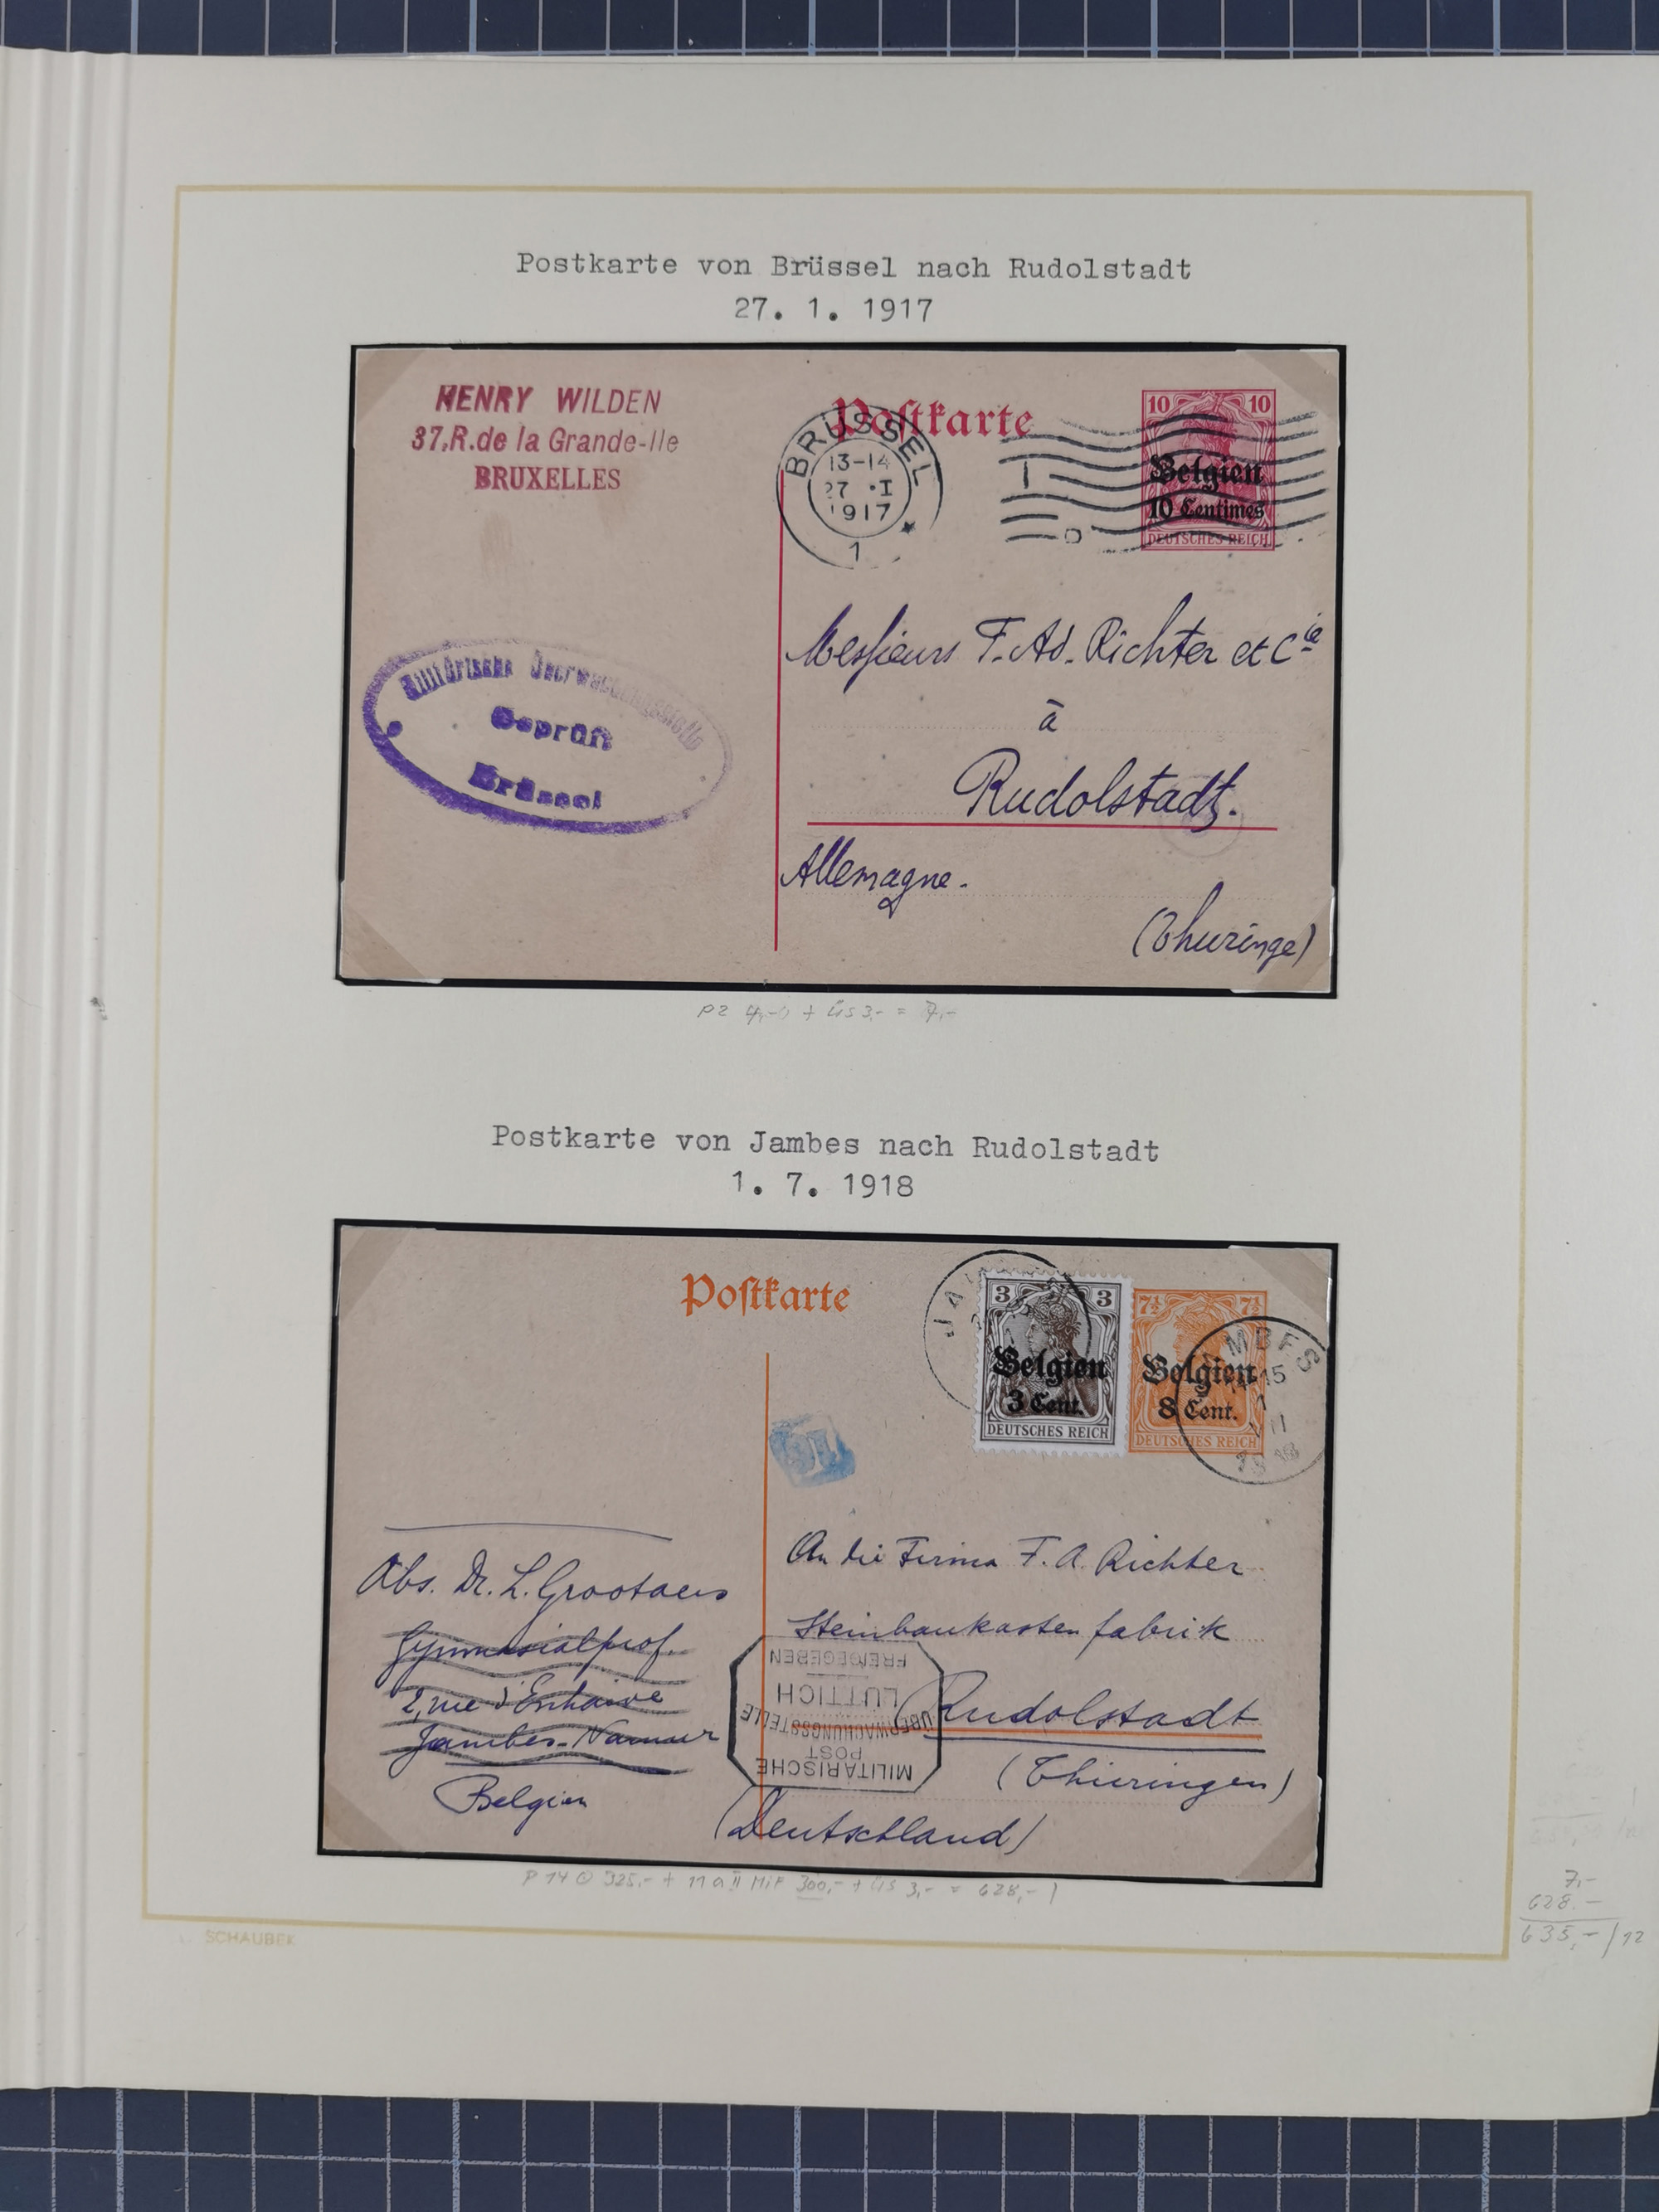 Postkarte von Brüssel nach Rudolstadt
27. 1. 1917
HENRY WILDEN
37,R.de la Grande-Ile
BRUXELLES
Postkarte
BRÜSSEL
13-14
27 •I
1917
1
10 10
Belgien
10 Centimes
DEUTSCHES REICH
Messieurs F. Ad. Richter et Cie
à
Rudolstadt.
Allemagne.
(Thuringe)
Militärische Überwachungsstelle
Geprüft
Brüssel
P2 + ÜS 3,- = 7,-
Postkarte von Jambes nach Rudolstadt
1. 7. 1918
Postkarte
3 3
Belgien
3 Cent.
DEUTSCHES REICH
7½ 7½
Belgien
8 Cent.
DEUTSCHES REICH
An die Firma F. A. Richter
Steinbaukasten fabrik
Rudolstadt
(Thüringen)
(Deutschland)
Abs. Dr. L. Grootaers
Gymnasialprof.
2, rue d'Enhaive
Jambes-Namur
Belgien
MILITÄRISCHE
POST
ÜBERWACHUNGSSTELLE
LÜTTICH
FREIGEGEBEN
P 14 ⊙ 325,- + 11 a II MiF 300,- + ÜS 3,- = 628,-
7,-
628.-
635,-/12
SCHAUBEK